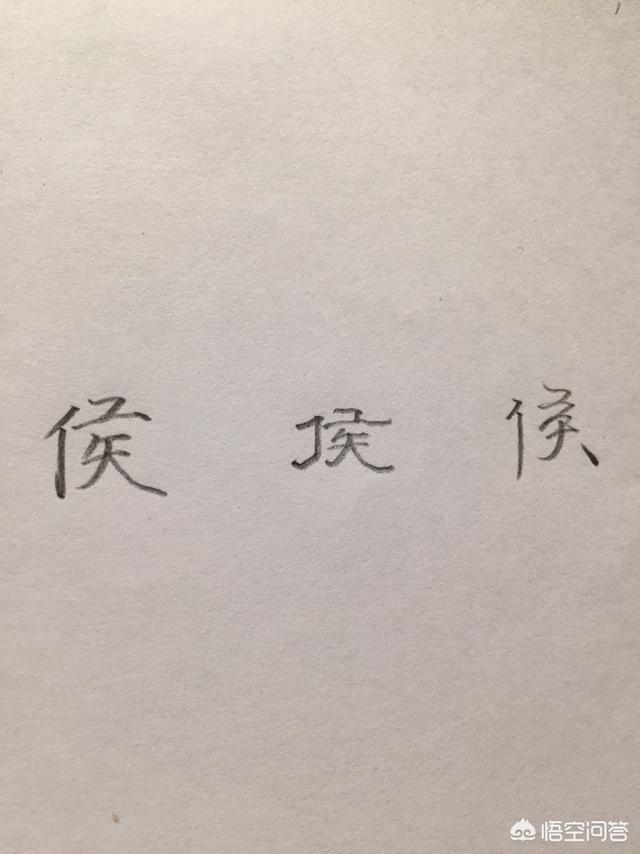 侯 侯 侯
悟空问答